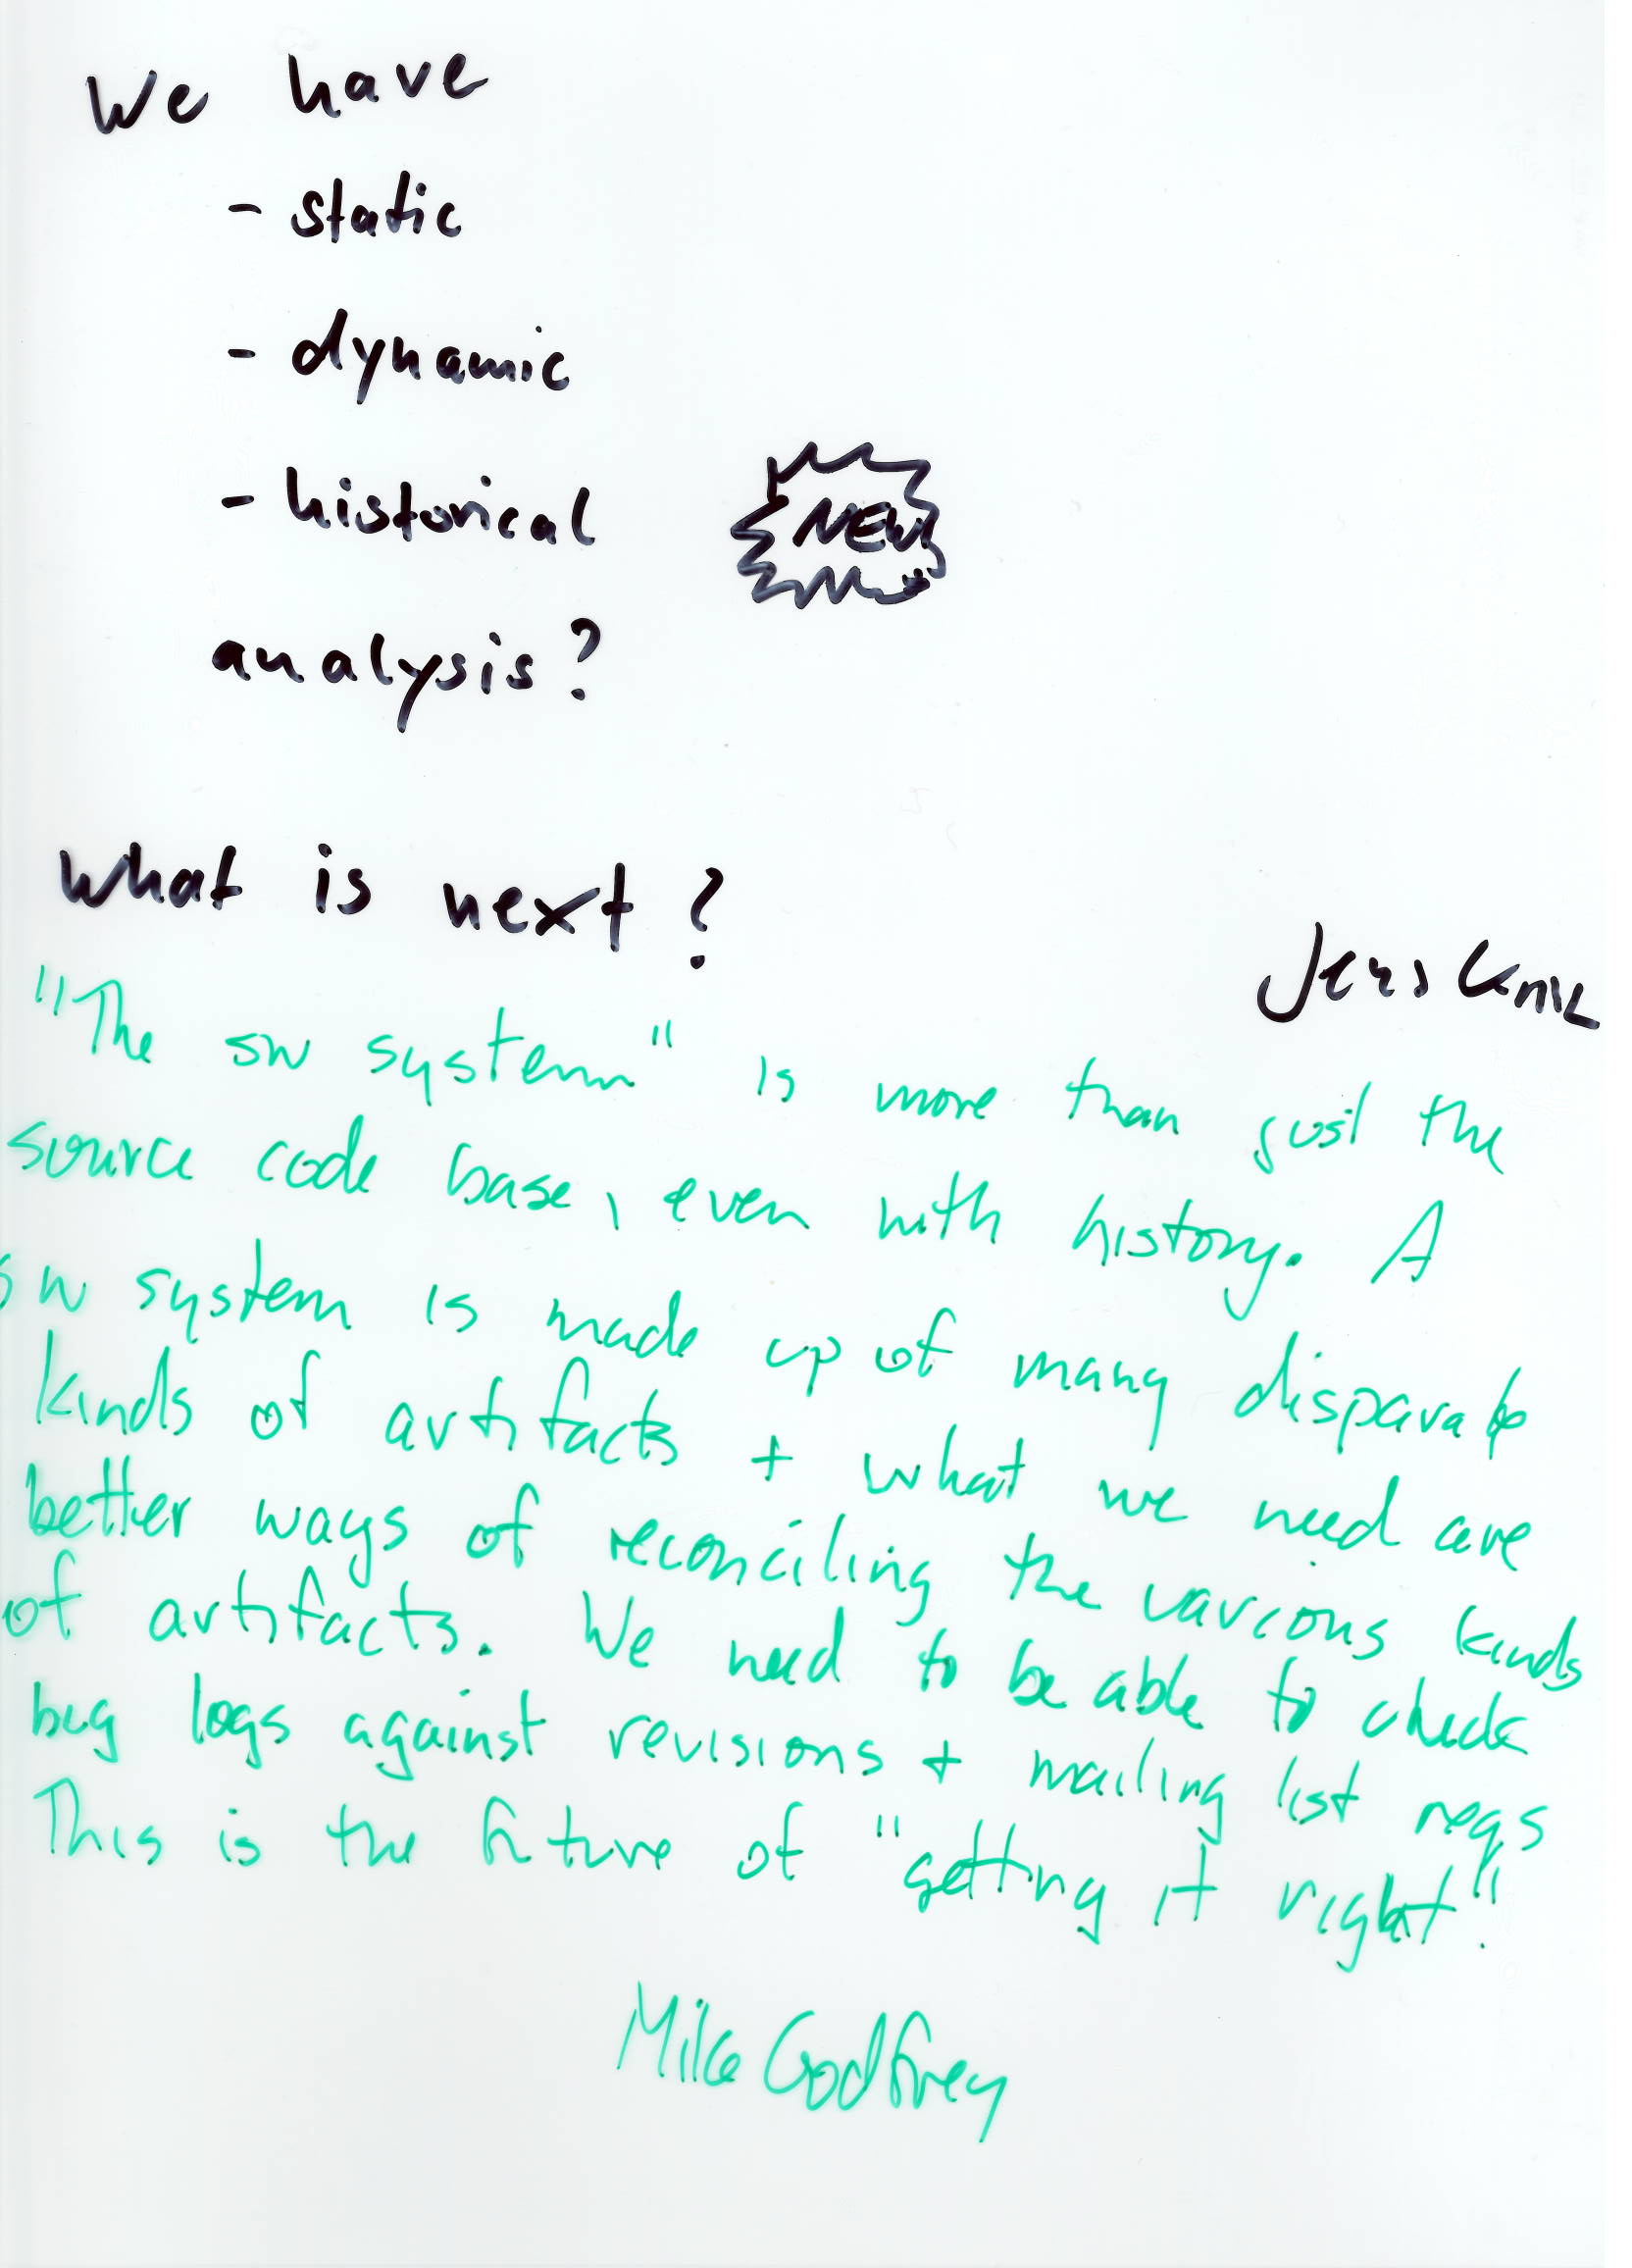 We have
- static
- dynamic
- historical NEW
analysis?
What is next?
Jens
"The sw system" is more than just the
source code base, even with history. A
sw system is made up of many disparate
kinds of artifacts + what we need are
better ways of reconciling the various kinds
of artifacts. We need to be able to check
bug logs against revisions + mailing list
This is the future of "getting it right".
Mike Godfrey